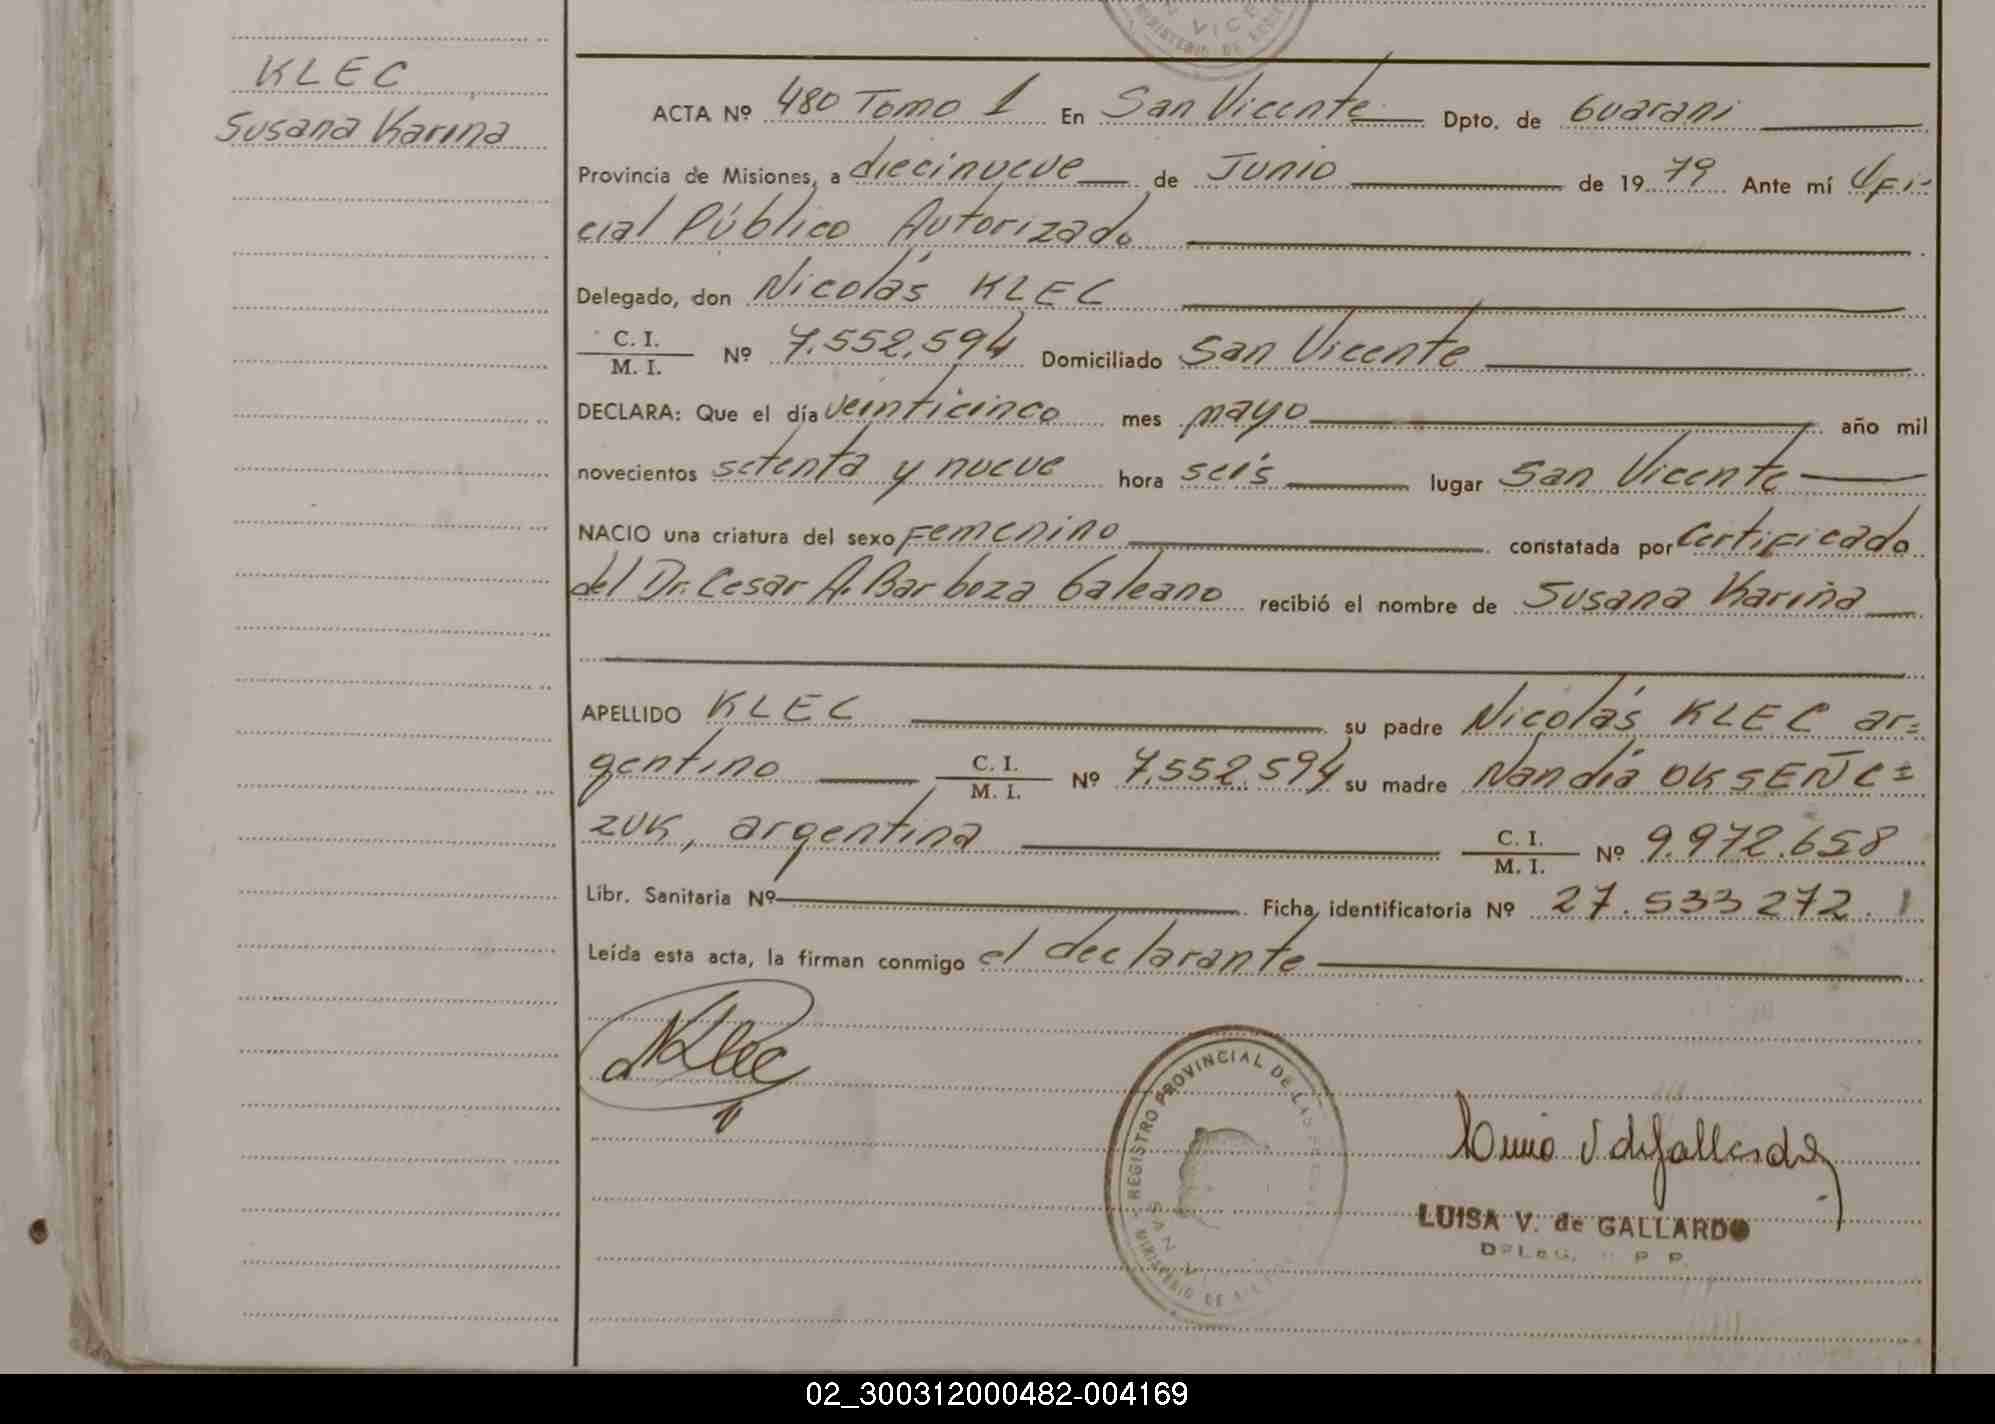 KLEC
Susana Karina
ACTA Nº 480 Tomo 1 En San Vicente Dpto. de Guarani
Provincia de Misiones, a diecinueve de Junio de 1979 Ante mí Ofi-
cial Público Autorizado
Delegado, don Nicolás KLEC
C. I.
M. I. Nº 7.552.594 Domiciliado San Vicente
DECLARA: Que el día veinticinco mes mayo año mil
novecientos setenta y nueve hora seis lugar San Vicente
NACIO una criatura del sexo Femenino constatada por Certificado
del Dr. Cesar A. Barboza Galeano recibió el nombre de Susana Karina
APELLIDO KLEC su padre Nicolás KLEC ar=
gentino C. I. M. I. Nº 7.552.594 su madre Nandia OKSEÑC=
ZUK, argentina C. I. M. I. Nº 9.972.658
Libr. Sanitaria Nº Ficha identificatoria Nº 27.533272.1
Leída esta acta, la firman conmigo el declarante
NKlec
REGISTRO PROVINCIAL DE LAS
SAN V
MINISTERIO DE
LUISA V. de GALLARDO
02_300312000482-004169